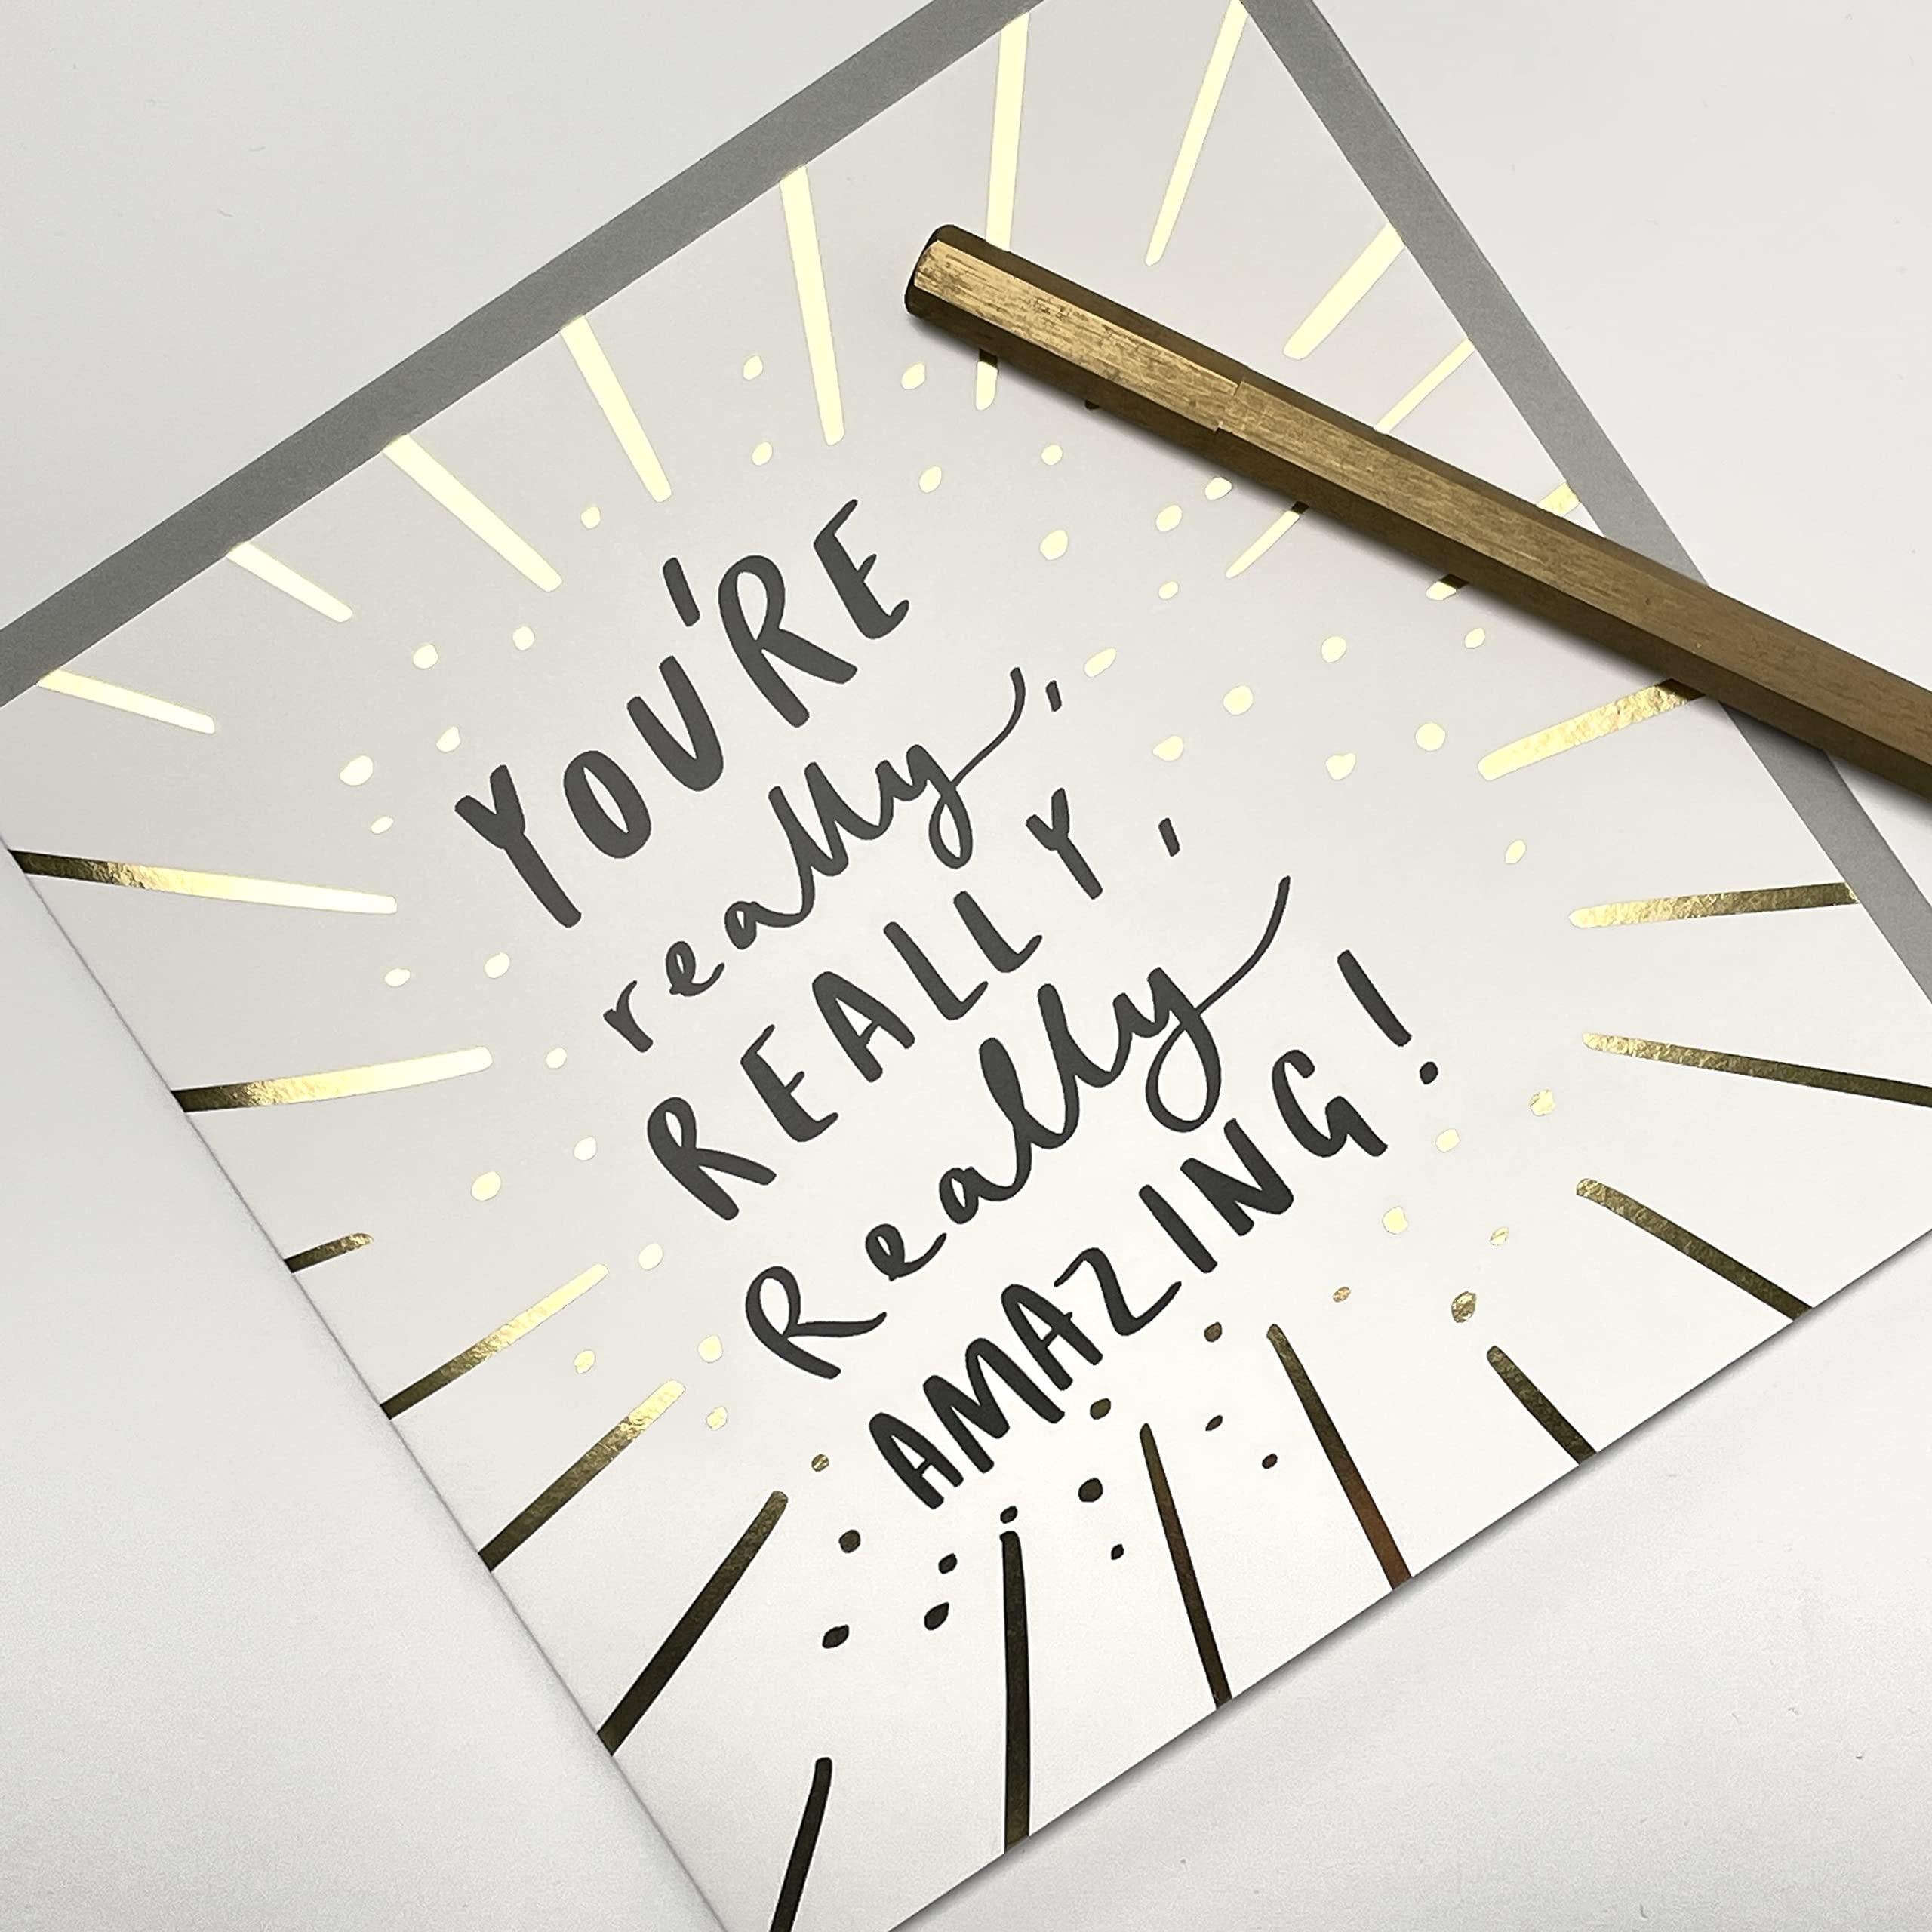 YOU'RE
really,
REALLY,
Really
AMAZING!